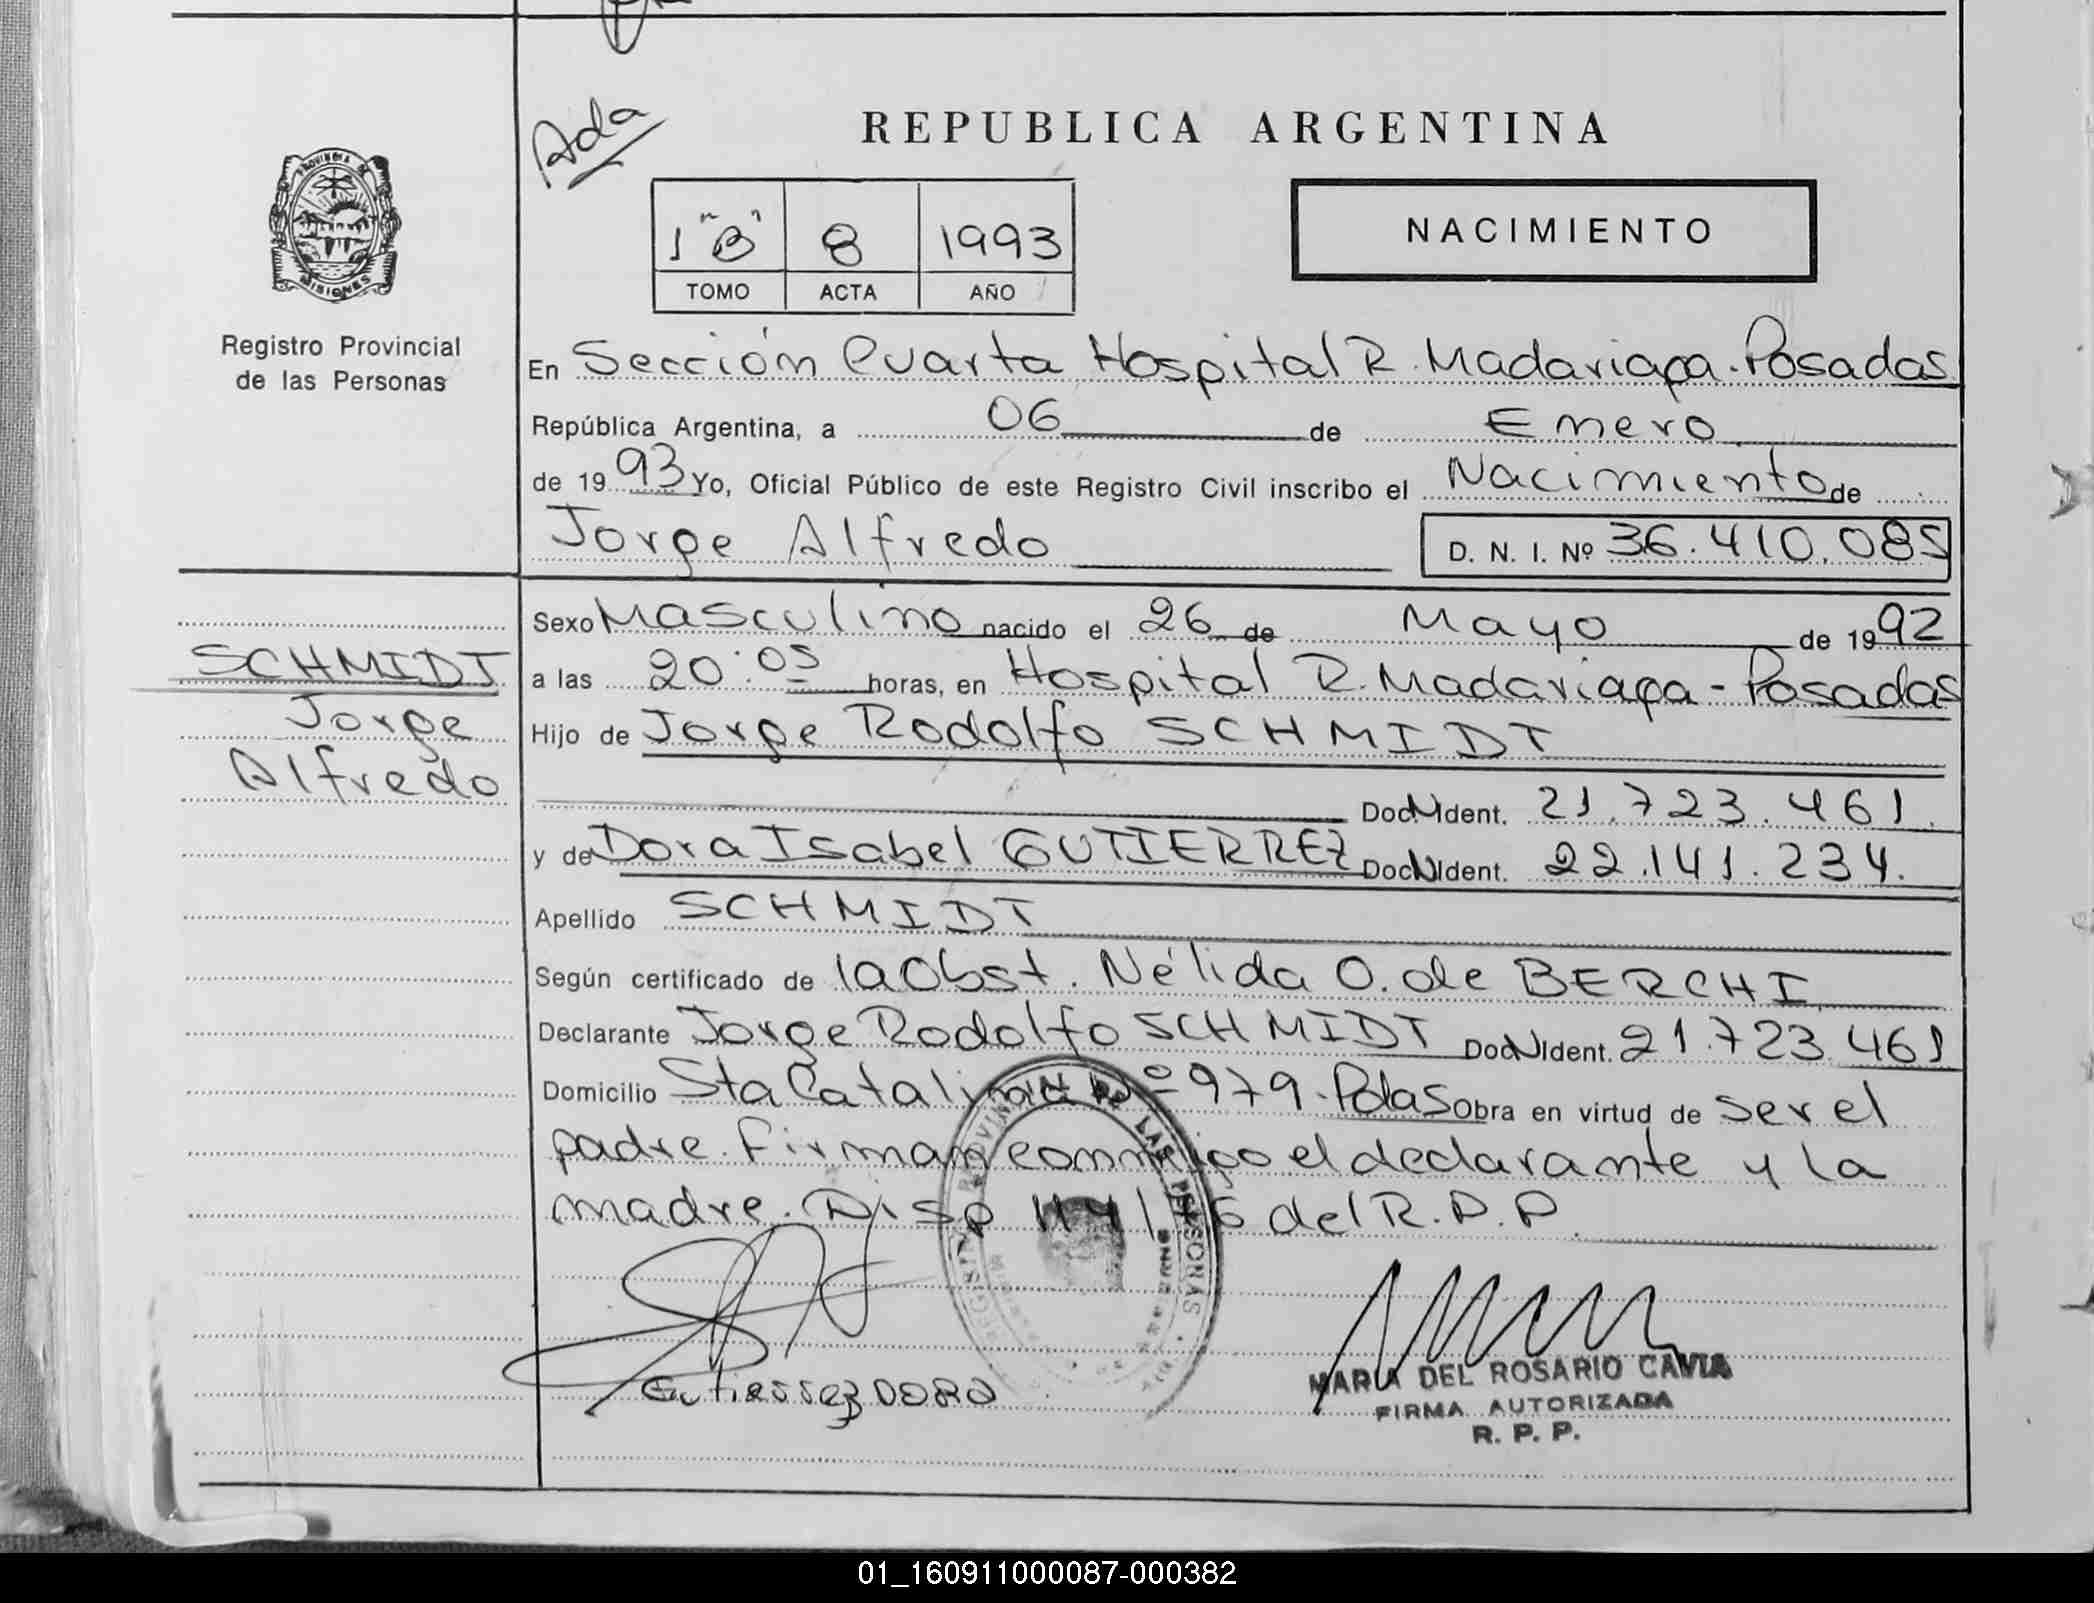 Ada
REPUBLICA ARGENTINA
PROVINCIA DE
MISIONES
Registro Provincial
de las Personas
1 "B" 8 1993
TOMO ACTA AÑO
NACIMIENTO
En Sección Cuarta Hospital R. Madariaga. Posadas
República Argentina, a 06 de Enero
de 1993 Yo, Oficial Público de este Registro Civil inscribo el Nacimiento de
Jorge Alfredo D. N. I. Nº 36.410.085
SCHMIDT
Jorge
Alfredo
Sexo Masculino nacido el 26 de Mayo de 1992
a las 20:05 horas, en Hospital R. Madariaga - Posadas
Hijo de Jorge Rodolfo SCHMIDT
Doc.N.Ident. 21.723.461.
y de Dora Isabel GUTIERREZ Doc.N.Ident. 22.141.234.
Apellido SCHMIDT
Según certificado de la Obst. Nélida O. de BERCHI
Declarante Jorge Rodolfo SCHMIDT Doc.N.Ident. 21.723.461
Domicilio Sta Catalina Nº 979. Pdas Obra en virtud de ser el
padre. Firman conmigo el declarante y la
madre. Disp 114/ del R.P.P
REGISTRO PROVINCIAL DE LAS PERSONAS
Gutierrez DORA
MARIA DEL ROSARIO CAVIA
FIRMA AUTORIZADA
R. P. P.
01_160911000087-000382